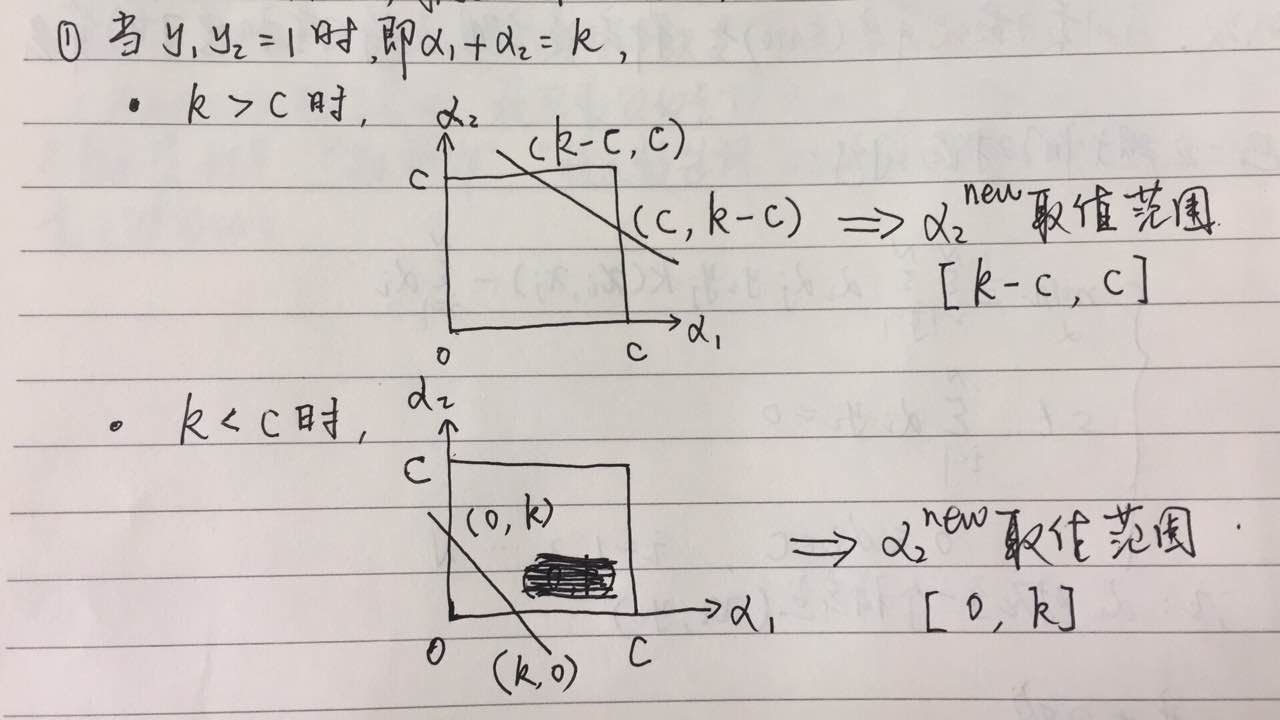 ① 当 y₁y₂=1 时,即α₁+α₂=k,
• k>c 时,
α₂
(k-c, c)
c
(c, k-c) ⟹ α₂ⁿᵉʷ 取值范围
[k-c, c]
0 c α₁
• k<c 时,
α₂
c
(0, k)
⟹ α₂ⁿᵉʷ 取值范围
[0, k]
α₁
0 c
(k,0)